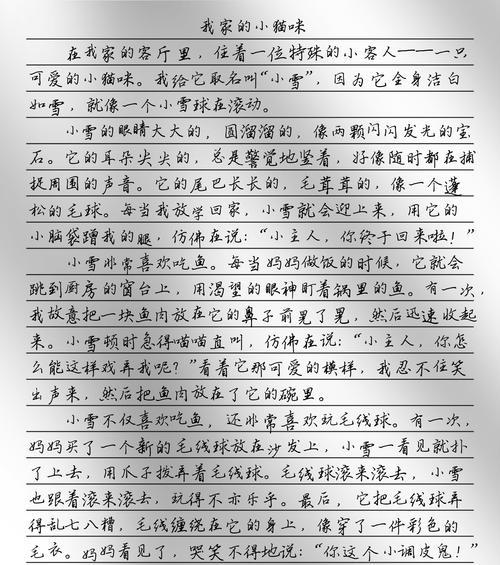 我家的小猫咪
在我家的客厅里，住着一位特殊的小客人——一只
可爱的小猫咪。我给它取名叫“小雪”，因为它全身洁白
如雪，就像一个小雪球在滚动。
小雪的眼睛大大的，圆溜溜的，像两颗闪闪发光的宝
石。它的耳朵尖尖的，总是警觉地竖着，好像随时都在捕
捉周围的声音。它的尾巴长长的，毛茸茸的，像一个蓬
松的毛球。每当我放学回家，小雪就会迎上来，用它的
小脑袋蹭我的腿，仿佛在说：“小主人，你终于回来啦！”
小雪非常喜欢吃鱼。每当妈妈做饭的时候，它就会
跳到厨房的窗台上，用渴望的眼神盯着锅里的鱼。有一次，
我故意把一块鱼肉放在它的鼻子前晃了晃，然后迅速收起
来。小雪顿时急得喵喵直叫，仿佛在说：“小主人，你怎
么能这样戏弄我呢？”看着它那可爱的模样，我忍不住笑
出声来，然后把鱼肉放在了它的碗里。
小雪不仅喜欢吃鱼，还非常喜欢玩毛线球。有一次，
妈妈买了一个新的毛线球放在沙发上，小雪一看见就扑
了上去，用爪子拨弄着毛线球。毛线球滚来滚去，小雪
也跟着滚来滚去，玩得不亦乐乎。最后，它把毛线球弄
得乱七八糟，毛线缠绕在它的身上，像穿了一件彩色的
毛衣。妈妈看见了，哭笑不得地说：“你这个小调皮鬼！”